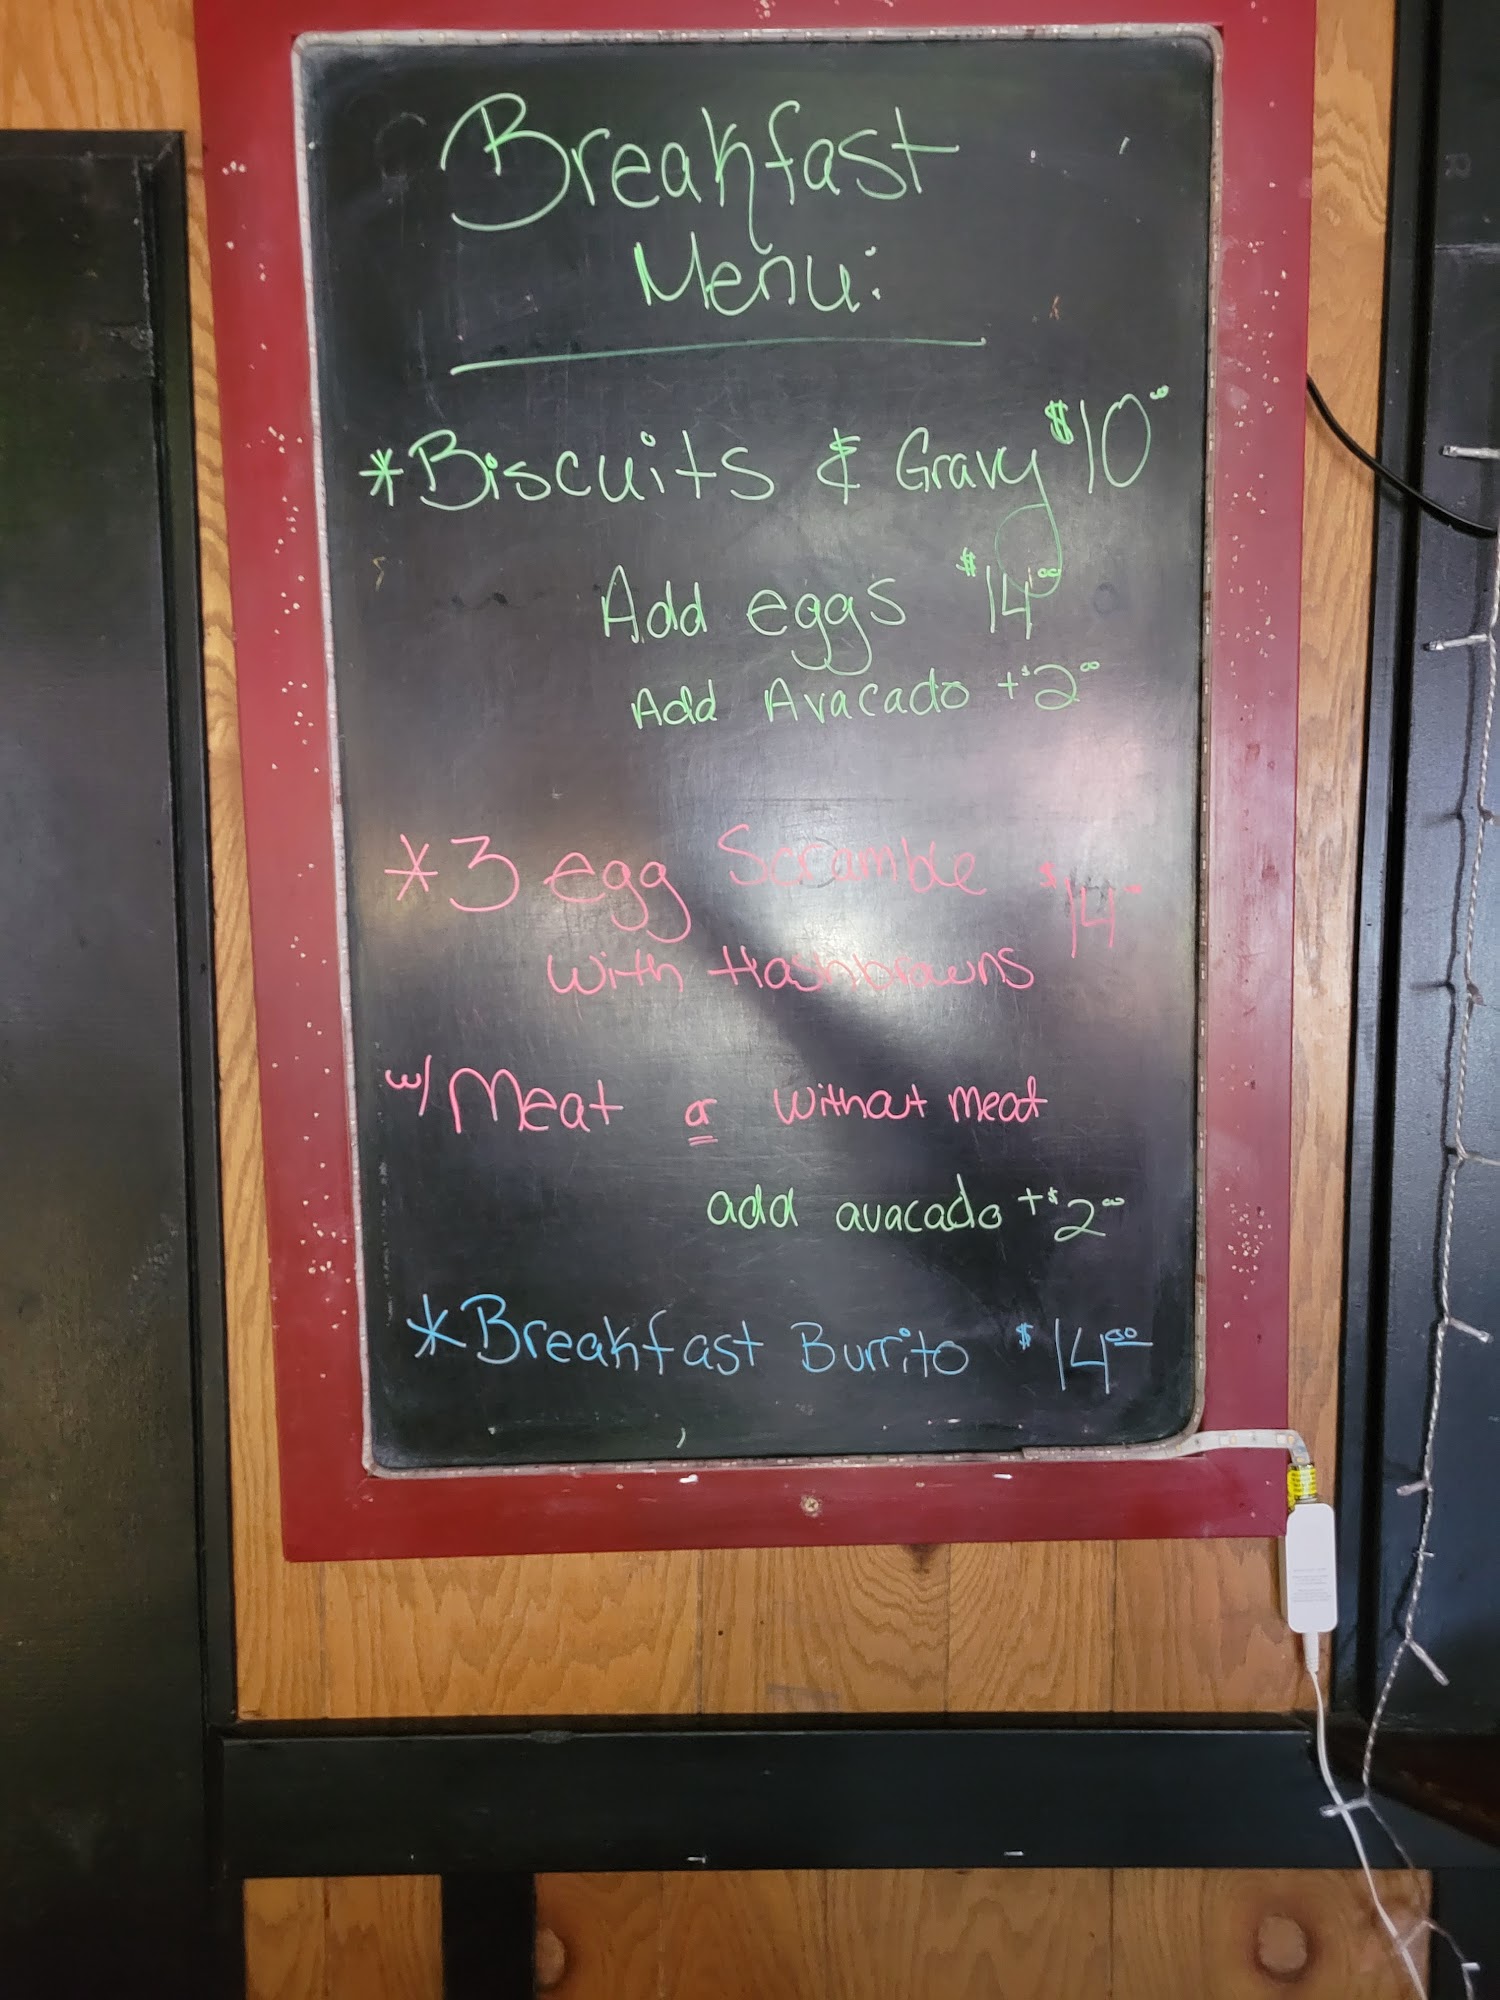 Breakfast
Menu:
*Biscuits & Gravy $10⁰⁰
Add eggs $14⁰⁰
Add Avacado +$2⁰⁰
*3 egg Scramble $14⁰⁰
with Hashbrowns
w/ Meat or without meat
add avacado +$2⁰⁰
*Breakfast Burrito $14⁰⁰